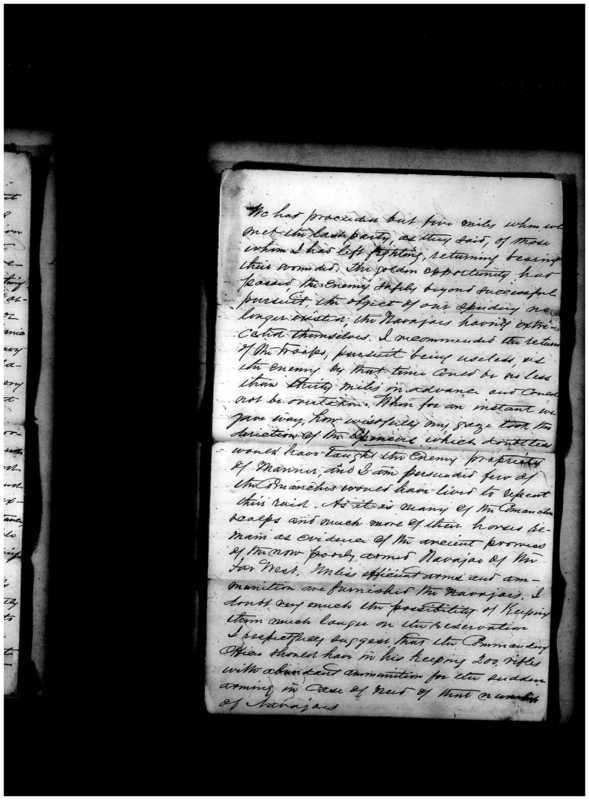 We had proceeded but five miles when we
met the last party, as they said, of those
whom I had left fighting, returning
their wounded. The golden opportunity had
passed, the enemy safely beyond successful
pursuit, the object of our speedy no
longer existed, the Navajoes having extri-
cated themselves. I recommended the return
of the troops, pursuit being useless, as
the enemy by that time could be no less
than thirty miles in advance and could
not be overtaken. When for an instant we
gave way, how wistfully my gaze took the
direction of the which doubtless
would have taught the enemy propriety
of manner, and I am persuaded few of
the Comanches would have lived to repeat
this raid. As it is many of the Comanche
scalps and much more of their horses re-
main as evidence of the ancient prowess
of the now poorly armed Navajoe of the
far West. Unless efficient arms and am-
munition are furnished the Navajoes, I
doubt very much the possibility of keeping
them much longer on the reservation
I respectfully suggest that the Commanding
Officer should have in his keeping 200 rifles
with abundant ammunition for the sudden
arming in case of need of that number
of Navajoes